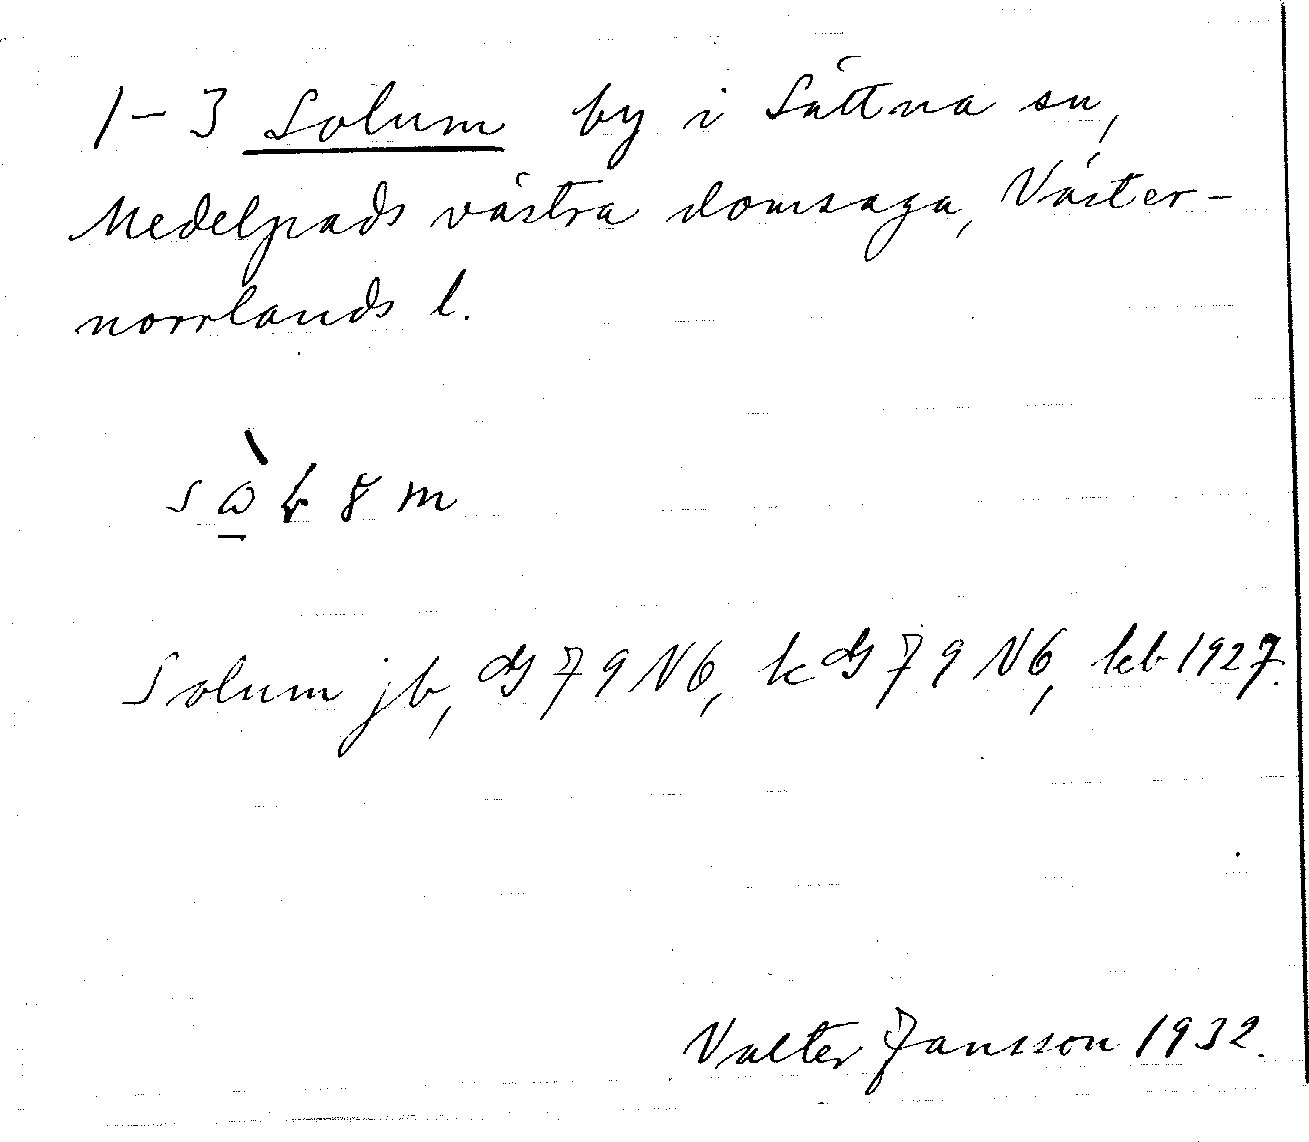 1-3 Solum by i Sättna sn,
Medelpads västra domsaga, Väster-
norrlands l.
Solum jb, GS 79 NV6, kGS 79 NV6, kb 1927.
Valter Jansson 1932.